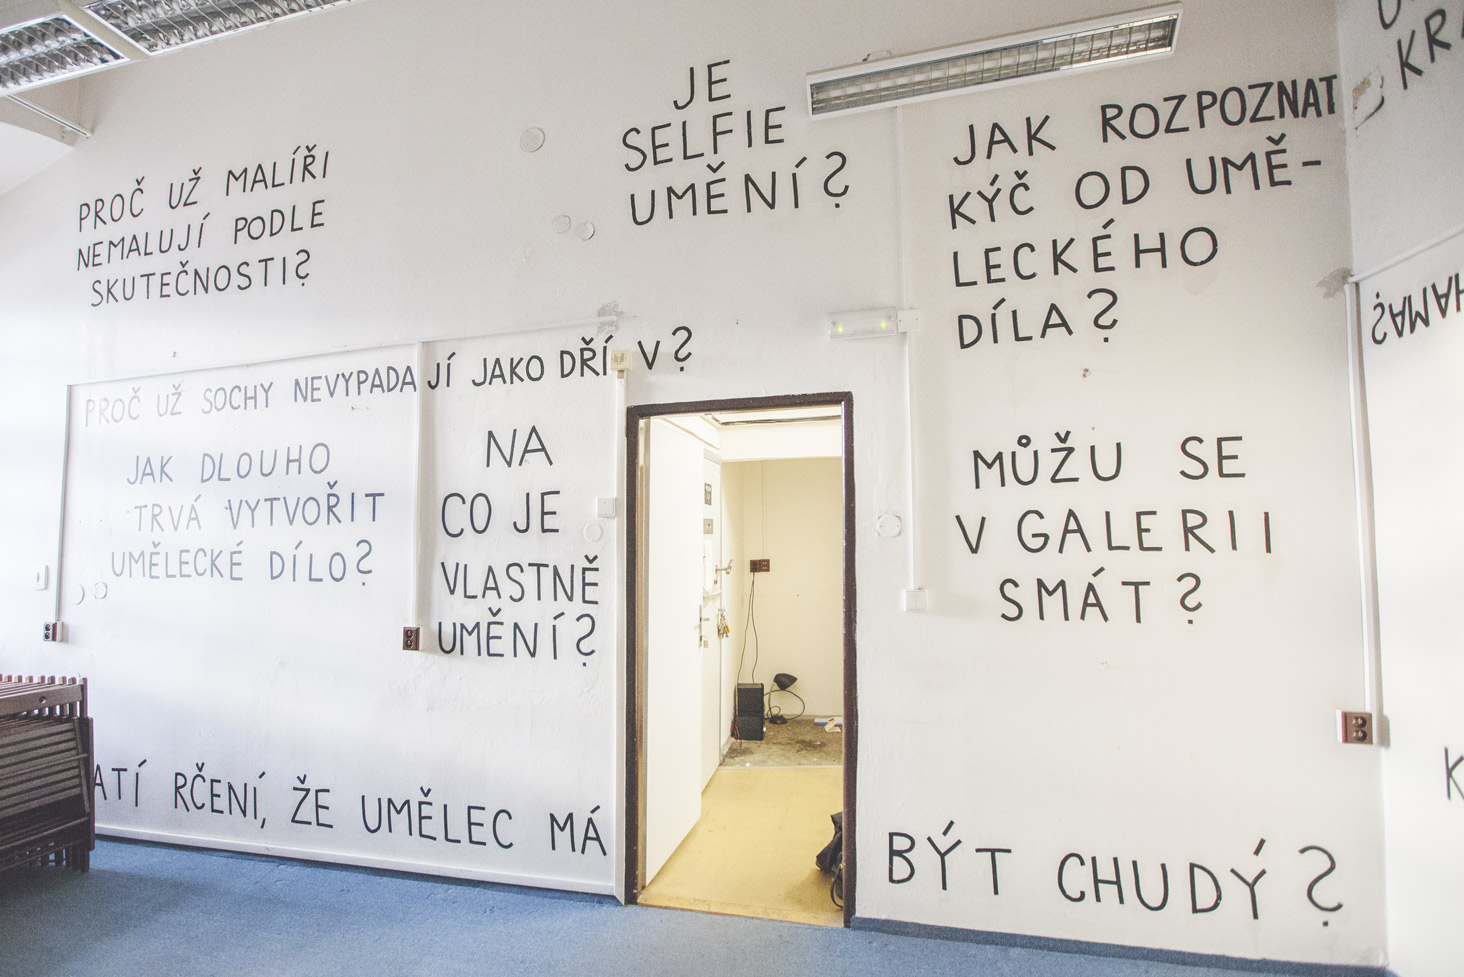 PROČ UŽ MALÍŘI
NEMALUJÍ PODLE
SKUTEČNOSTI?
JE
SELFIE
UMĚNÍ?
JAK ROZPOZNAT
KÝČ OD UMĚ-
LECKÉHO
DÍLA?
PROČ UŽ SOCHY NEVYPADAJÍ JAKO DŘÍV?
JAK DLOUHO
TRVÁ VYTVOŘIT
UMĚLECKÉ DÍLO?
NA
CO JE
VLASTNĚ
UMĚNÍ?
MŮŽU SE
V GALERII
SMÁT?
ATÍ RČENÍ, ŽE UMĚLEC MÁ
BÝT CHUDÝ?